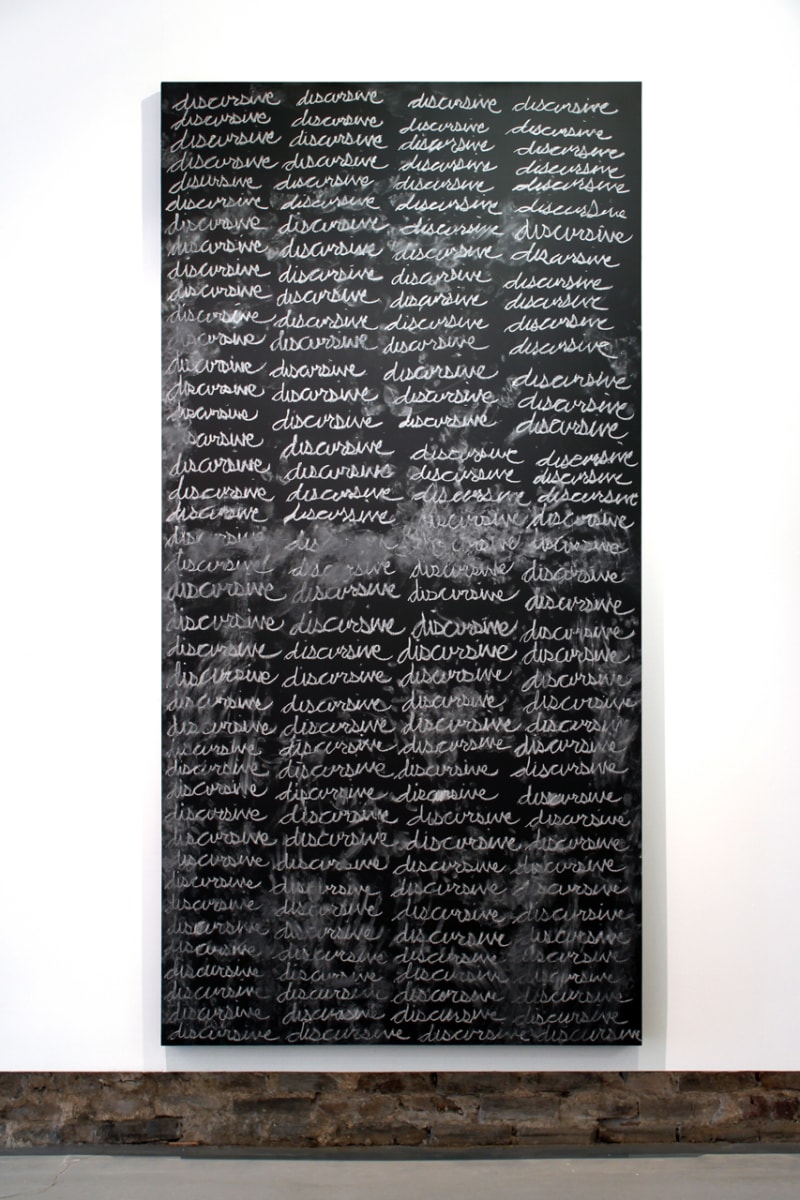 discursive discursive discursive discursive
discursive discursive discursive discursive
discursive discursive discursive discursive
discursive discursive discursive discursive
discursive discursive discursive discursive
discursive discursive discursive discursive
discursive discursive discursive discursive
discursive discursive discursive discursive
discursive discursive discursive discursive
discursive discursive discursive discursive
discursive discursive discursive discursive
discursive discursive discursive discursive
discursive discursive discursive discursive
discursive discursive discursive discursive
discursive discursive discursive discursive
cursive discursive discursive discursive
discursive discursive discursive discursive
discursive discursive discursive discursive
discursive discursive discursive discursive
dis
discursive discursive discursive discursive
discursive discursive discursive discursive
discursive discursive discursive discursive
discursive discursive discursive discursive
discursive discursive discursive discursive
discursive discursive discursive discursive
discursive discursive discursive discursive
discursive discursive discursive discursive
discursive discursive discursive discursive
discursive discursive discursive discursive
discursive discursive discursive discursive
discursive discursive discursive discursive
discursive discursive discursive discursive
discursive discursive discursive discursive
discursive discursive discursive discursive
discursive discursive discursive discursive
discursive discursive discursive discursive
discursive discursive discursive discursive
discursive discursive discursive discursive
discursive discursive discursive discursive
discursive discursive discursive discursive